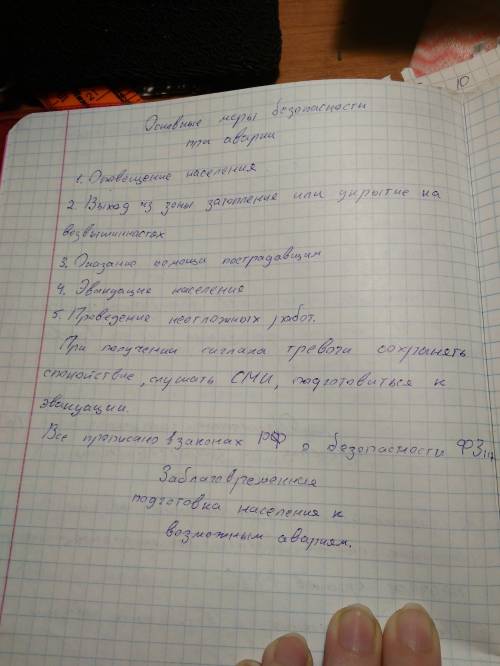 10
Основные меры безопасности
при аварии
1. Оповещение населения
2. Выход из зоны затопления или укрытие на
возвышинностях
3. Оказание помощи пострадавшим
4. Эвакуация населения
5. Проведение неотложных работ.
При получении сигнала тревоги сохранять
спокойствие, слушать СМИ, подготовиться к
эвакуации.
Все прописано в законах РФ о безопасности ФЗ
Заблаговременная
подготовка населения к
возможным авариям.